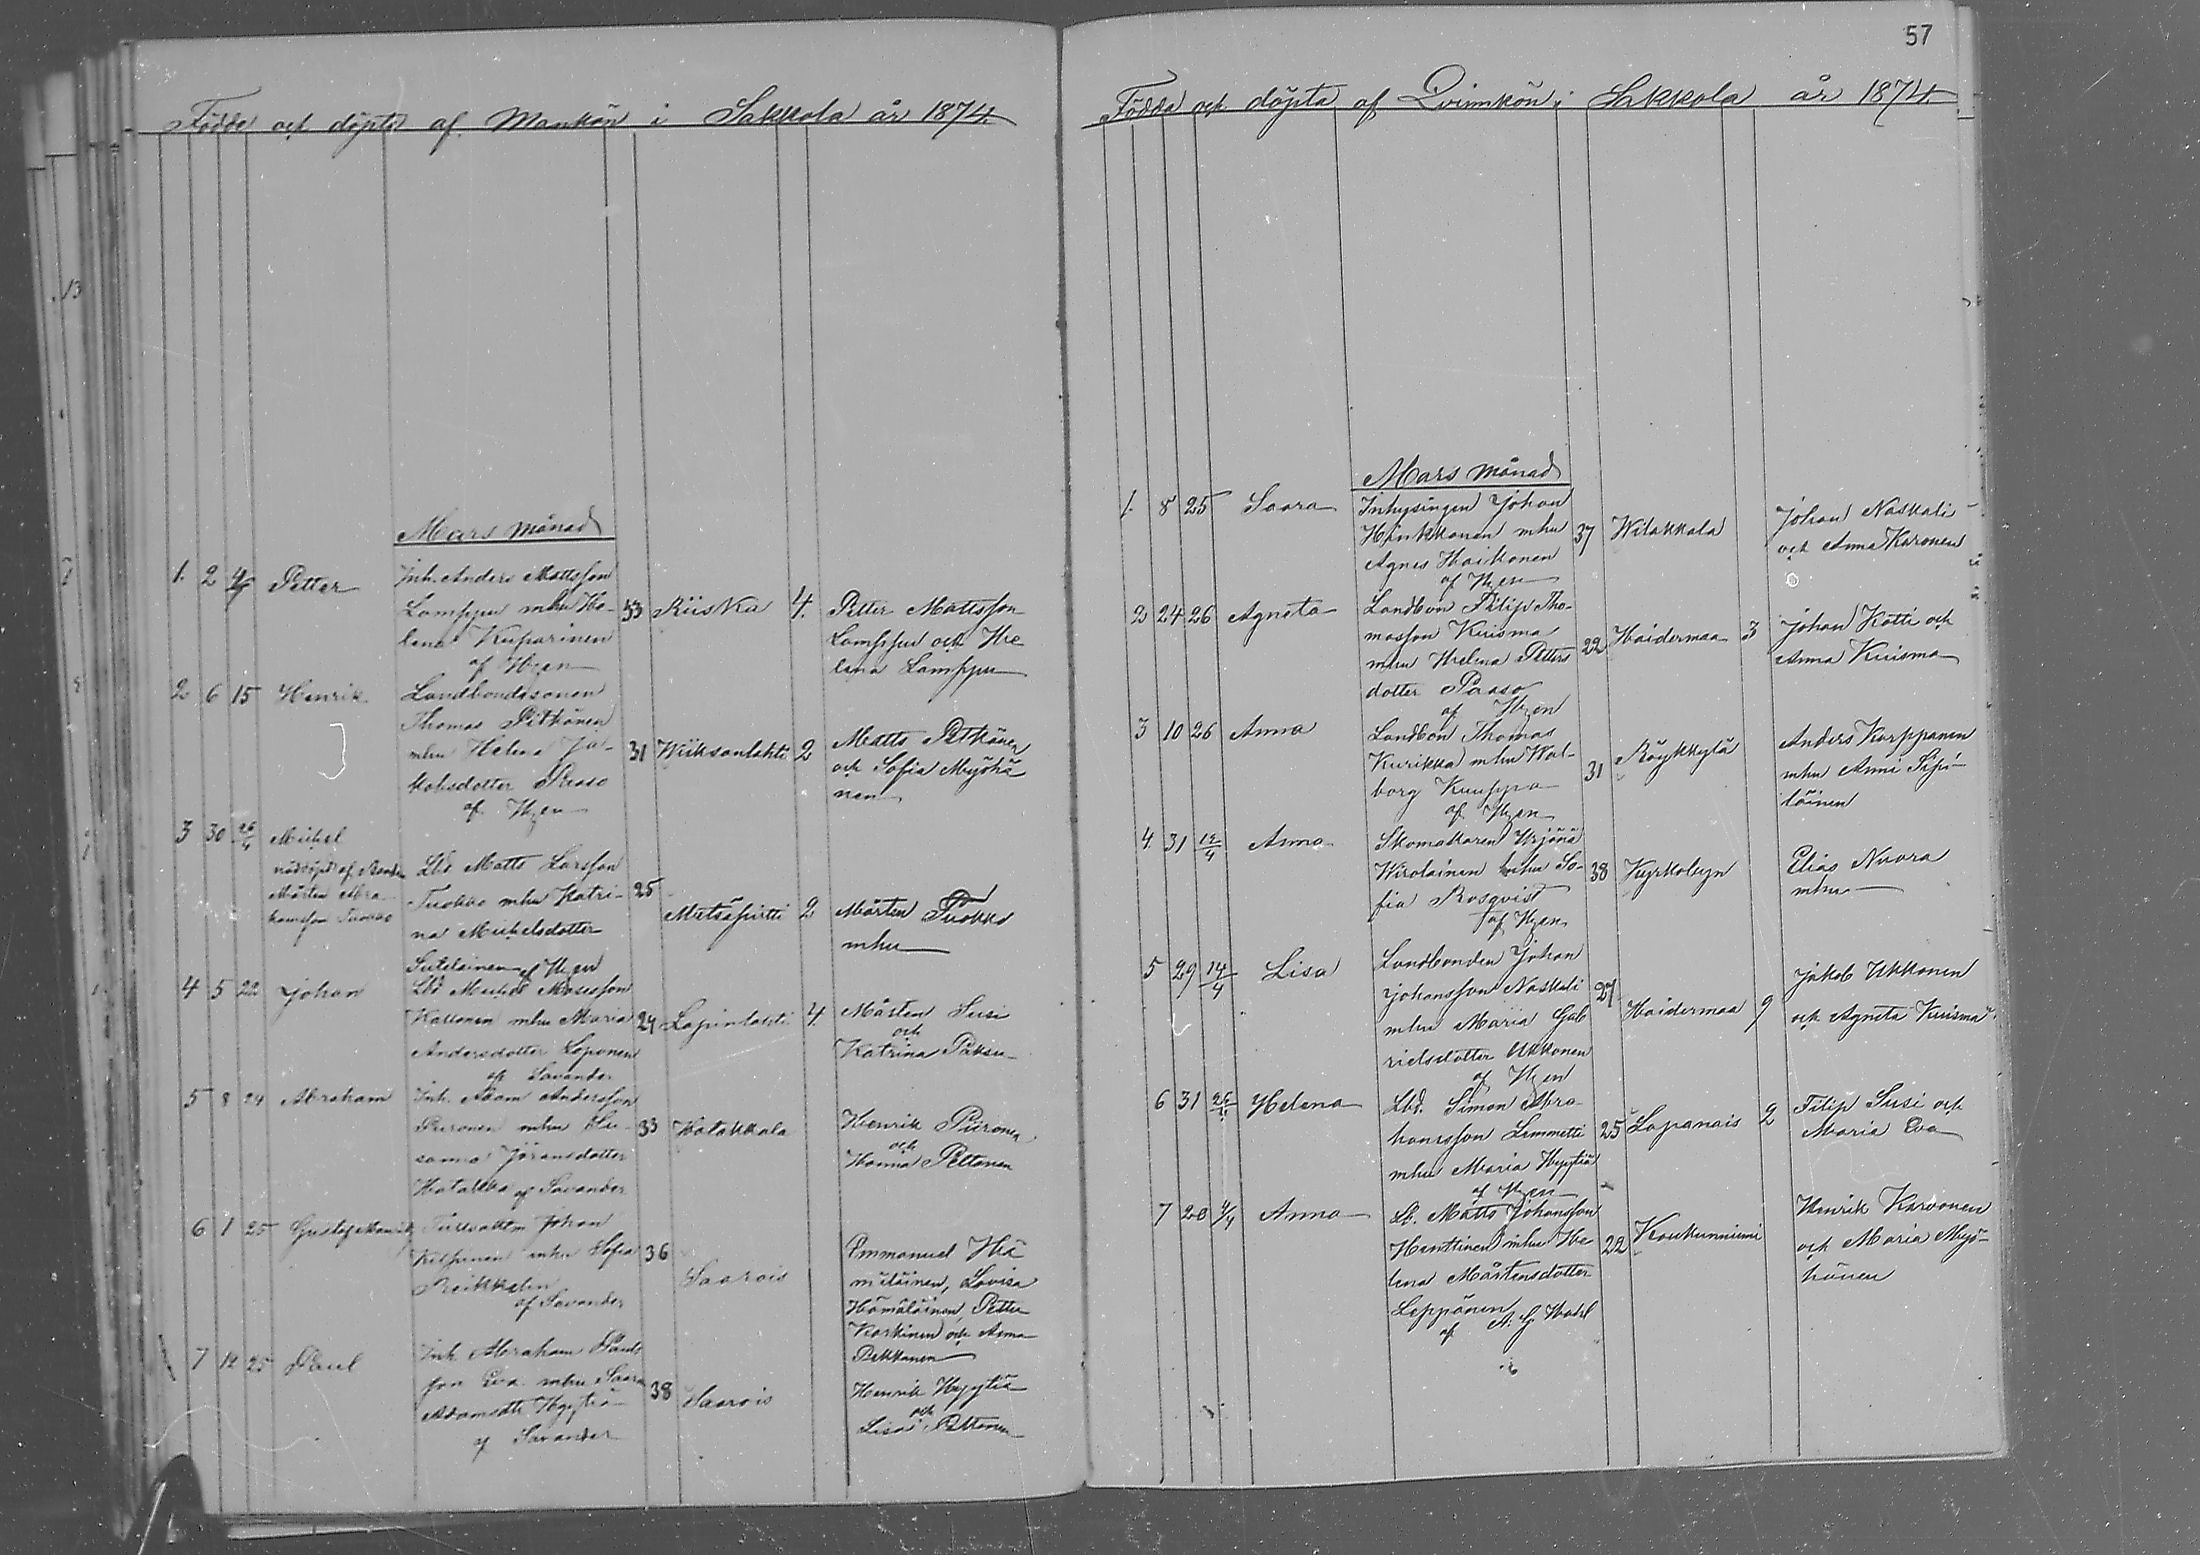 Födde och döpte af Mankön i Sakkola år 1874.
Mars månad
1. 2 4/5 Petter
Inh. Anders Mattsson
Lamppu mhu He-
lena Kuparinen
af Hzen
33 Riiska 4.
Petter Mattsson
Lamppu och He
lena Lamppu
2 6 15 Henrik
Landbondesonen
Thomas Pitkänen
mhu Helena Ja-
kobsdotter Paaso
af Hzen
31 Wiiksanlahti 2
Matts Pitkänen
och Sofia Myöhä
nen
3 30 26/4 Mickel
nöddöpt af
Mårten Abra
hamsson Tuokko
Lbd Matts Larsson
Tuokko mhu Katri-
na Mickelsdotter
af Hzen
25 Metsäpirtti 2
Mårten Tuokko
mhu
4 5 22 Johan
Lbd Mickel Mosesson
mhu Maria
Andersdotter Loponen
af Savander
24 Lapinlahti 4.
Mårten Susi
och
Katrina Paksu
5 8 24 Abraham
Inh. Adam Andersson
Piironen mhu Su-
sanna Jöransdotter
Hatakka af Savander
33 Hatakkala
Henrik Piironen
och
Hanna Peltonen
6 1 25
Johan
mhu Sofia
af Savander
36 Saarois
Emmanuel Hä
mäläinen, Lovisa
Hämäläinen, Petter
Karkinen och Anna
Pekkanen
7 12 25 Paul
Inh. Abraham Pauls
son Eva mhu Saara
Adamsdtr Hyytiä
af Savander
38 Saarois
Henrik Hyytiä
och
Lisa Peltonen
57
Födda och döpta af Qvinnkön i Sakkola år 1874.
Mars månad
1. 8 25 Saara
Inhysingen Johan
Hinkkanen mhu
Agnes Haikonen
af Hzen
37 Wilakkala
Johan Naskali
och Anna Karonen
2 24 26 Agneta
Landbon Filip Tho-
masson Kuisma
mhu Helena Petters
dotter Paaso
af Hzen
22 Haidermaa 3
Johan Kotti och
Anna Kuisma
3 10 26 Anna
Landbon Thomas
Kurikka mhu Wal-
borg Kuuppa
af Hzen
31 Röykkylä
Anders Karppanen
mhu Anni Sipi-
läinen
4. 31 12/4 Anna
Skomakaren Yrjänä
Wirolainen mhu So-
fia Rosqvist
af Hzen
38 Kyrkobyn
Elias Nuora
mhu
5 29 14/4 Lisa
Landbonden Johan
Johansson Naskali
mhu Maria Gab
rielsdotter Ukkonen
af Hzen
27 Haidermaa 9
Jakob Ukkonen
och Agneta Kuisma
6 31 26/4 Helena
Lbd. Simon Abra-
hamsson Lemmetti
mhu Maria Hyytiä
af Hzen
25 Lapanais 2
Filip Susi och
Maria Eva
7 20 4/4 Anna
Lb. Matts Johansson
Hanttinen mhu He
lena Mårtensdotter
Leppänen
af A. G. Wahl
22 Koukunniemi
Henrik Karvonen
och Maria Myö-
hänen